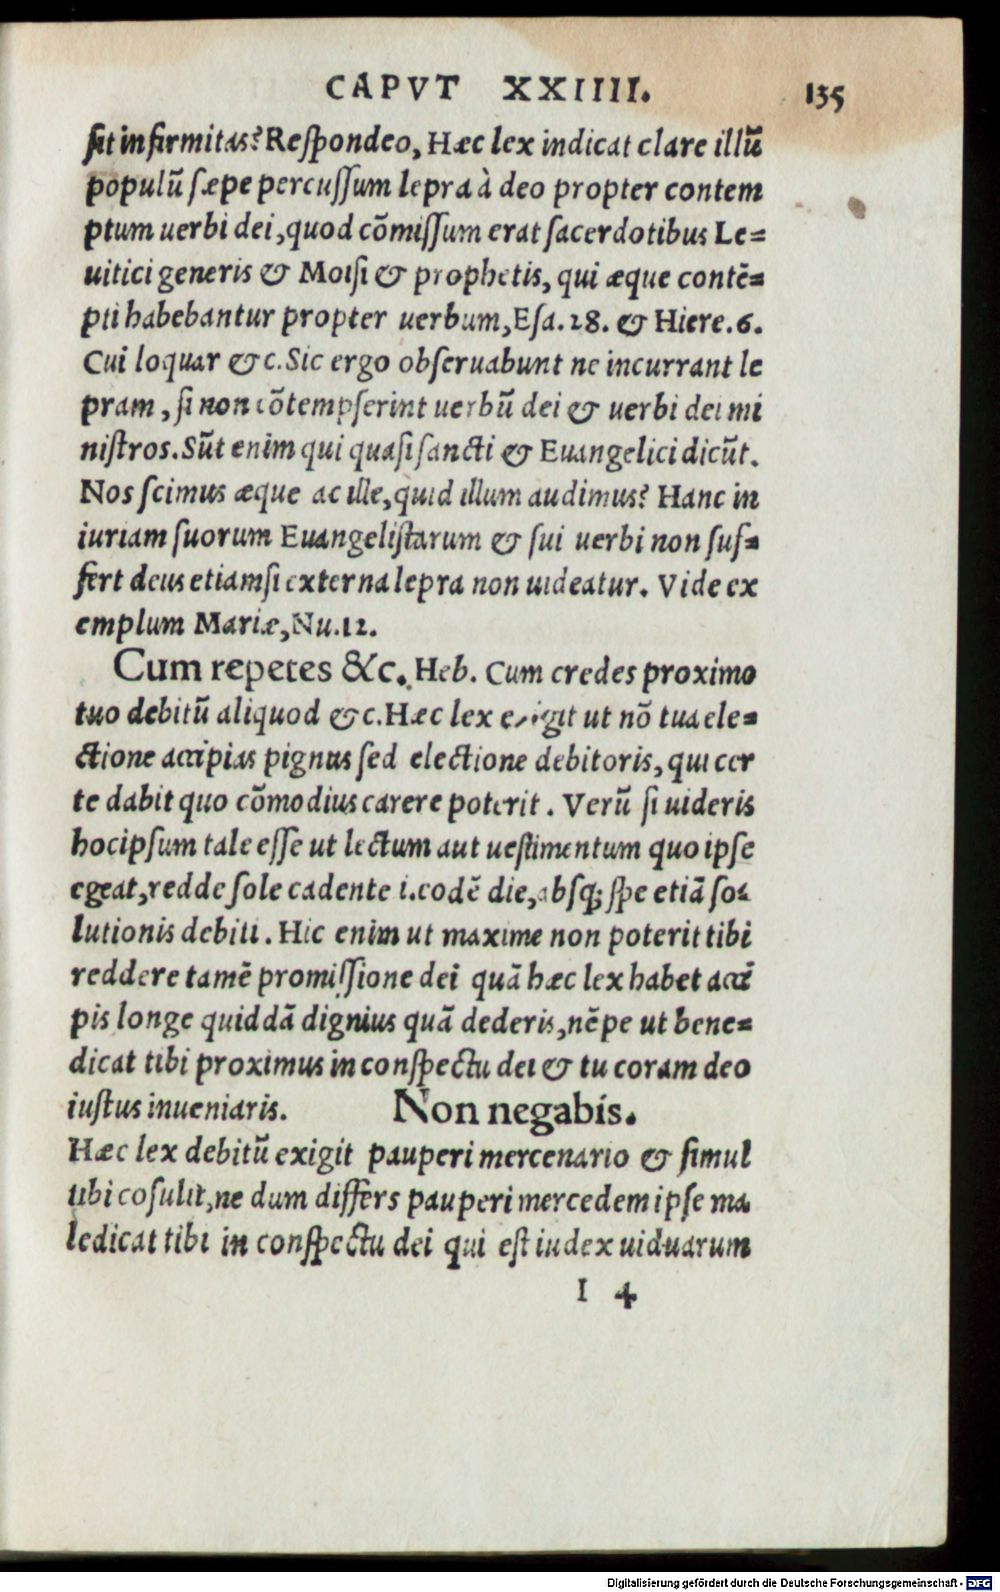 CAPVT XXIIII. 135
ſit infirmitas? Reſpondeo, Hæc lex indicat clare illũ
populũ ſæpe percuſſum lepra à deo propter contem
ptum uerbi dei, quod cõmiſſum erat ſacerdotibus Le=
uitici generis & Moiſi & prophetis, qui æque contẽ=
pti habebantur propter uerbum, Eſa. 28. & Hiere. 6.
Cui loquar &c. Sic ergo obſeruabunt ne incurrant le
pram, ſi non cõtempſerint uerbũ dei & uerbi dei mi
niſtros. Sũt enim qui quaſi ſancti & Euangelici dicũt.
Nos ſcimus æque ac ille, quid illum audimus? Hanc in
iuriam ſuorum Euangeliſtarum & ſui uerbi non ſuf=
fert deus etiamſi externa lepra non uideatur. Vide ex
emplum Mariæ, Nu. 12.
Cum repetes &c. Heb. Cum credes proximo
tuo debitũ aliquod &c. Hæc lex exigit ut nõ tua ele=
ctione accipias pignus ſed electione debitoris, qui cer
te dabit quo cõmodius carere poterit. Verũ ſi uideris
hocipſum tale eſſe ut lectum aut ueſtimentum quo ipſe
egeat, redde ſole cadente i. eodẽ die, abſq; ſpe etiã ſo=
lutionis debiti. Hic enim ut maxime non poterit tibi
reddere tamẽ promiſſione dei quã hæc lex habet acci
pis longe quiddã dignius quã dederis, nẽpe ut bene=
dicat tibi proximus in conſpectu dei & tu coram deo
iuſtus inueniaris. Non negabis.
Hæc lex debitũ exigit pauperi mercenario & ſimul
tibi coſulit, ne dum differs pauperi mercedem ipſe ma
ledicat tibi in conſpectu dei qui eſt iudex uiduarum
I 4
Digitalisierung gefördert durch die Deutsche Forschungsgemeinschaft - DFG